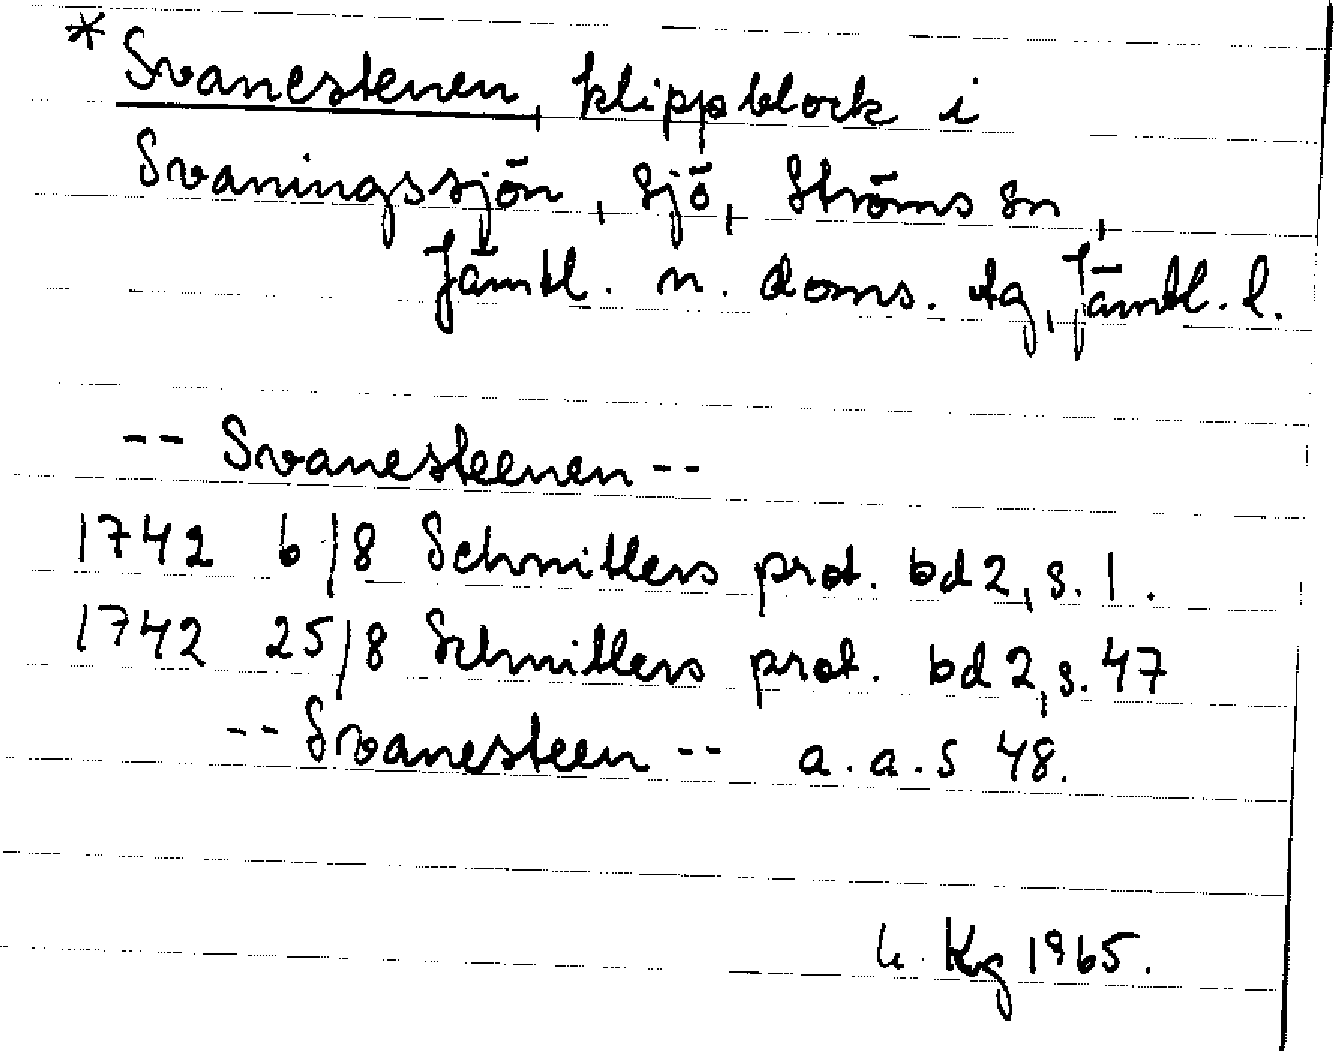 * Svanestenen, klippblock i
Svaningssjön, sjö, Ströms sn,
Jämtl. n. doms. tg, Jämtl. l.
-- Svanesteenen --
1742 6/8 Schnitlers prot. bd 2, s. 1.
1742 25/8 Schnitlers prot. bd 2, s. 47
-- Svanesteen -- a.a. s 48.
Kg 1965.